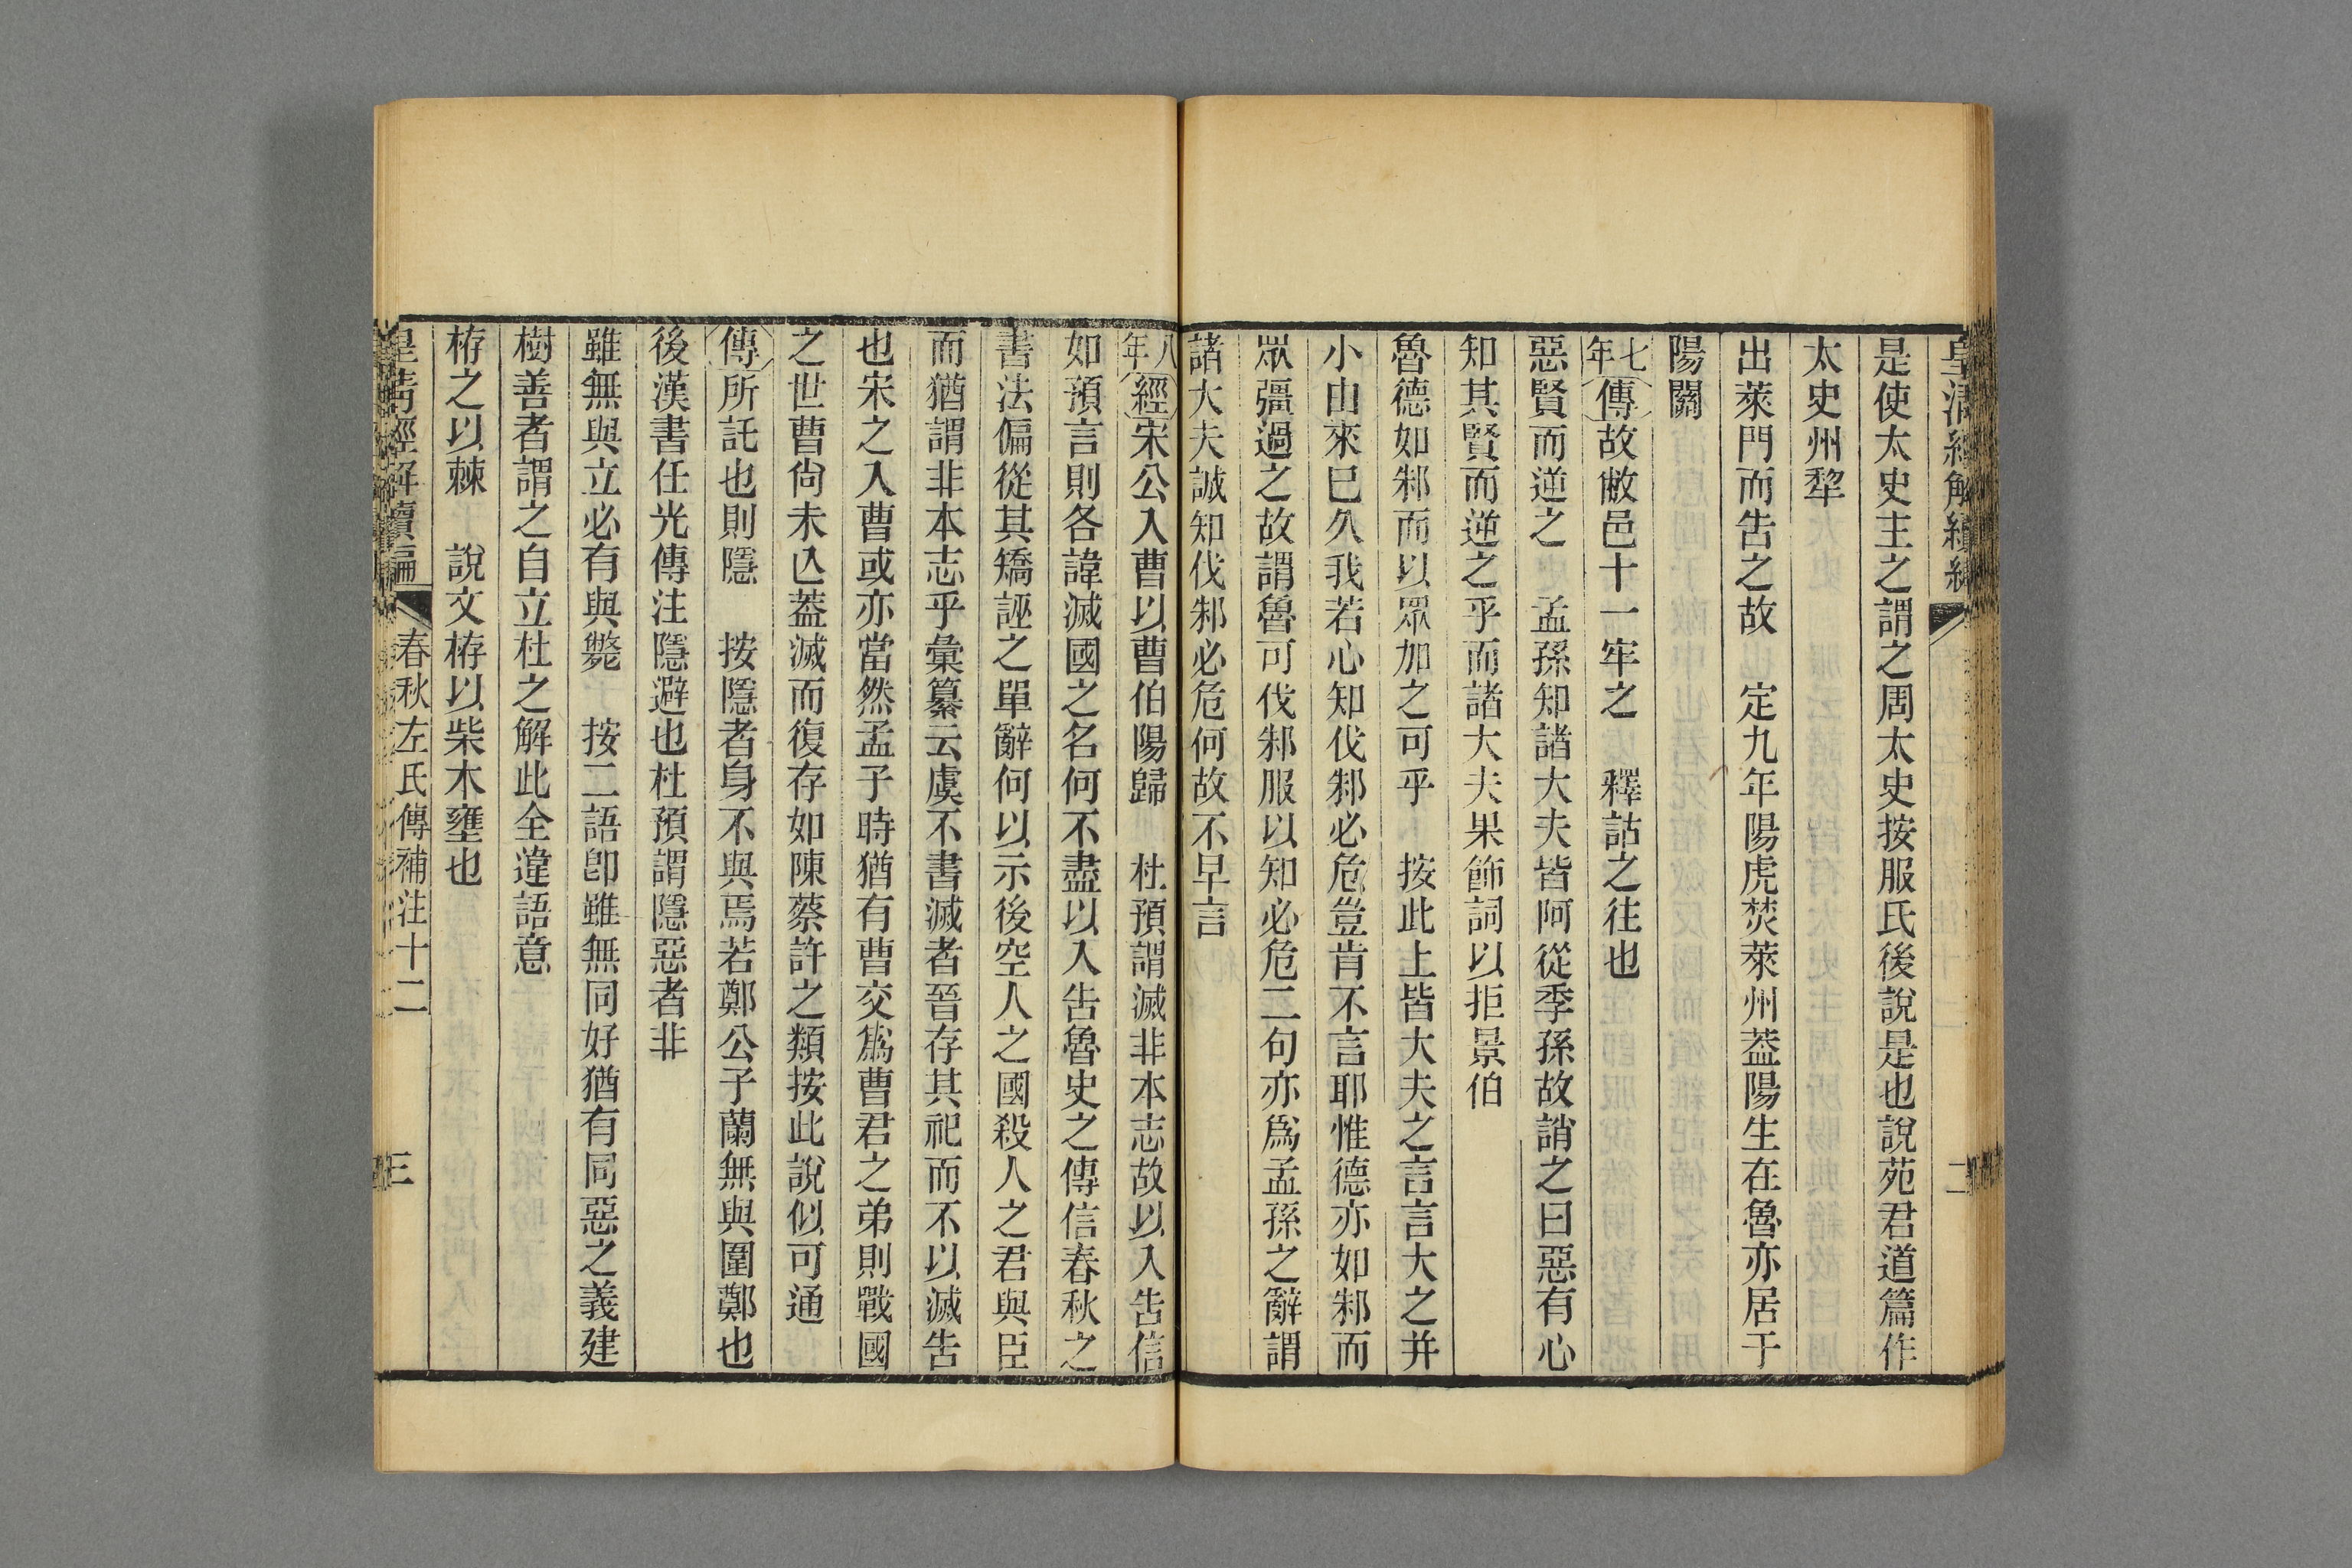 皇清經解續編
二
是使太史主之謂之周太史按服氏後說是也說苑君道篇作
太史州犂
出萊門而告之故　定九年陽虎焚萊州葢陽生在魯亦居于
陽關
七年傳故敝邑十一牢之　釋詁之往也
惡賢而逆之　孟孫知諸大夫皆阿從季孫故誚之曰惡有心
知其賢而逆之乎而諸大夫果飾詞以拒景伯
魯德如邾而以眾加之可乎　按此上皆大夫之言言大之并
小由來已久我若心知伐邾必危豈肯不言耶惟德亦如邾而
眾彊過之故謂魯可伐邾服以知必危二句亦爲孟孫之辭謂
諸大夫誠知伐邾必危何故不早言
八年經宋公入曹以曹伯陽歸　杜預謂滅非本志故以入告信
如預言則各諱滅國之名何不盡以入告魯史之傳信春秋之
書法偏從其矯誣之單辭何以示後空人之國殺人之君與臣
而猶謂非本志乎彙纂云虞不書滅者晉存其祀而不以滅告
也宋之入曹或亦當然孟子時猶有曹交爲曹君之弟則戰國
之世曹尙未亾葢滅而復存如陳蔡許之類按此說似可通
傳所託也則隱　按隱者身不與焉若鄭公子蘭無與圍鄭也
後漢書任光傳注隱避也杜預謂隱惡者非
雖無與立必有與斃　按二語卽雖無同好猶有同惡之義建
樹善者謂之自立杜之解此全違語意
栫之以棘　說文栫以柴木壅也
皇清經解續編
春秋左氏傳補注十二
三